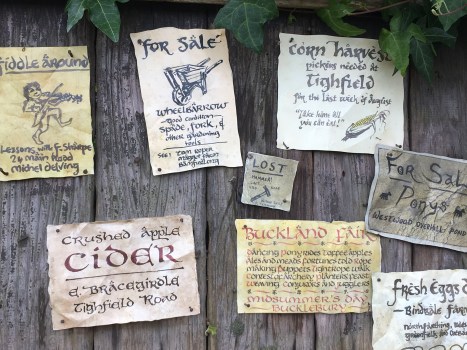 Fiddle Around
Lessons with F. Sharpe
24 Main Road
Michel Delving
For Sale
Wheelbarrow
Good condition
Spade, fork, &
other gardening
tools
See: Tom Roper
Corn Harvest
pickers needed at
Tighfield
for the last week of August
"Take home all
you can eat."
Lost
Hammer!
For Sale
Ponys
Westwood Overhill Pond
Crushed Apple
Cider
E. Bracegirdle
Tighfield Road
Buckland Fair
Dancing Pony rides Toffee apples
Ales and meads Fortunes told Rope
making Puppets Tightrope walk
contest Archery
weaving Conjurors and jugglers
Midsummer's Day
Bucklebury
Fresh Eggs d
Bindbale Farm